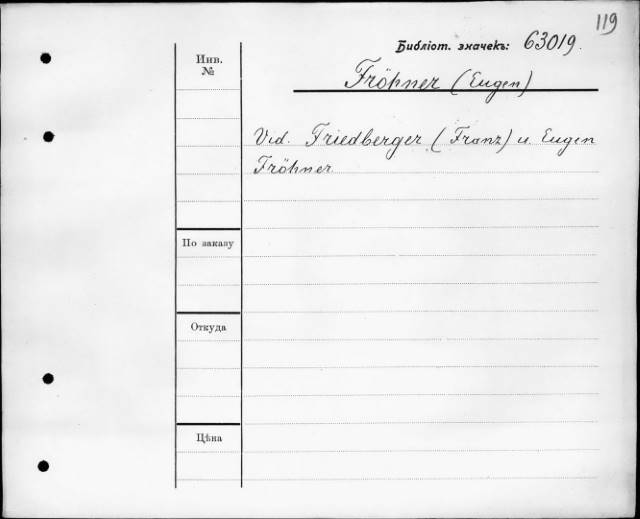 119
Библіот. значекъ: 63019.
Инв.
№
Fröhner (Eugen)
Vid. Friedberger (Franz) u. Eugen
Fröhner
По заказу
Откуда
Цѣна